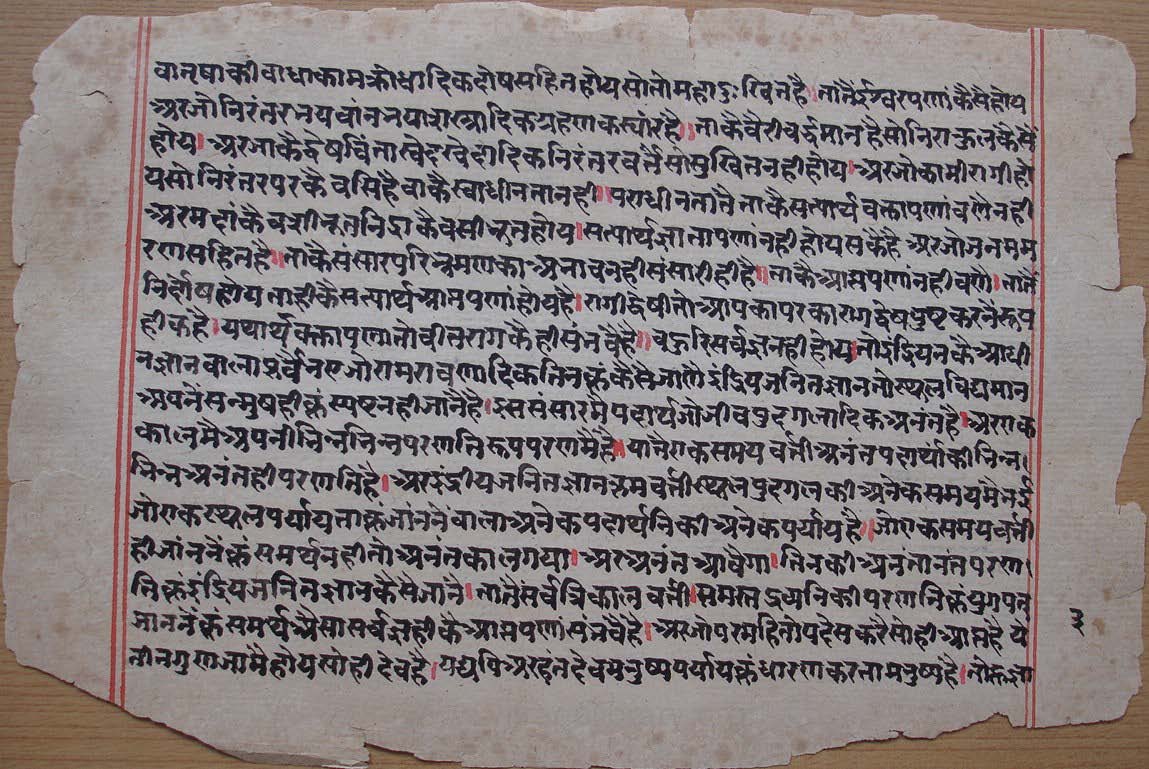 वा तृषा की वाधा काम क्रोधादिक दोष सहित होय सो तो महादुःखित है। तातैं ईश्वरपणां कैसै होय
अर जो निरंतर भयवांन भया शस्त्रादिक ग्रहण क रह्या है। ताकै वैरी वर्द्धमान है सो निराकुल कैसैं
होय। अर जाकै द्वेष चिंता खेद खेदादिक निरंतर वर्तै सो सुखित नही होय। अर जो कामी रागी हो
य सो निरंतर पर कै वसि है वाकै स्वाधीनता नही। पराधीनतातै ताकै सत्यार्थ वक्तापणां वणै नही
अर मदां कै वशीभूत निद्रा कै वसीभूत होय। सत्यार्थ ज्ञातापणां नही होय सकै है अर जो जनम म
रण सहित है। ताकै संसार परिभ्रमण का अभाव नही संसारी ही है। ताकै आप्तपणां नही वणै। तातैं
निर्दोष होय ताही कै सत्यार्थ आप्तपणां होय है। रागी द्वेषी तो आपका परका राग द्वेष पुष्ट करनें रूप
ही कहै। यथार्थ वक्तापणा तो वीतराग कै ही संभवै है। वहुरि सर्वज्ञ नही होय तो इंद्रियन कै आधी
न ज्ञान वाला पूर्वै भए जो राम रावणादिक तिनकूं कैसै जाणै इंद्रियजनित ज्ञान तो स्थूल विद्यमान
अपनें सन्मुष ही कूं स्पष्ट नही जानै है। इस संसार मै पदार्थ जो जीव पुद्गलादिक अनंत है। अर एक
काल मै अपनी भिन्न भिन्न परणति रूप परणमै है। यातै एक समयवर्ती अनंत पदार्थां की भिन्न
भिन्न अनंत ही परणति है। अर इंद्रीयजनित ज्ञान क्रमवर्ती स्थूल पुद्गल की अनेक समय मै भई
जो एक स्थूल पर्याय ताकूं जांननें वाला अनेक पदार्थनि की अनेक पर्याय है। जो एक समयवर्ती
ही जांननें कूं समर्थ नही तो अनंतकाल गया। अर अनंत आवैगा। तिनकी अनंतानंत परण
तिकूं इंद्रियजनित ज्ञान कैसै जांनै। तातै सर्व त्रिकालवर्ती। समस्त द्रव्यनि की परणति कूं युगपत्
जाननें कूं समर्थ असा सर्वज्ञ ही कै आप्तपणां संभवै है। अर जो परम हितोपदेस करै सो ही आप्त है ये
तीन गुण जामै होय सो ही देव है। यद्यपि अरहंत देव मनुष्य पर्याय कूं धारण करता मनुष्य है। तोहू ज्ञा
३